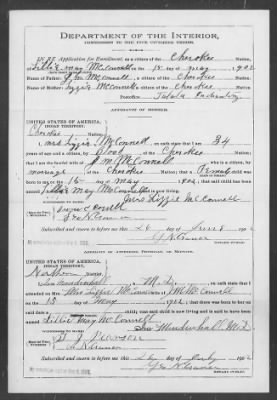 DEPARTMENT OF THE INTERIOR,
COMMISSION TO THE FIVE CIVILIZED TRIBES.
IN RE Application for Enrollment, as a citizen of the Cherokee Nation,
of Lillie May McConnell, born on the 15 day of May, 1902
Name of Father: J M McConnell, a citizen of the Cherokee Nation.
Name of Mother: Lizzie McConnell a citizen of the Cherokee Nation.
Postoffice Talala
AFFIDAVIT OF MOTHER.
UNITED STATES OF AMERICA,
INDIAN TERRITORY,
Cherokee Nation.
I, Mrs Lizzie McConnell, on oath state that I am 34
years of age and a citizen by Blood, of the Cherokee Nation;
that I am the lawful wife of J M McConnell, who is a citizen, by
marriage of the Cherokee Nation; that a Female child was
born to me on the 15 day of May, 1902, that said child has been
named Lillie May McConnell, and is now living.
Mrs Lizzie McConnell
Subscribed and sworn to before me this 26 day of June, 1902
NOTARY PUBLIC.
AFFIDAVIT OF ATTENDING PHYSICIAN, OR MIDWIFE.
UNITED STATES OF AMERICA,
INDIAN TERRITORY,
Northern
I, Mendenhall, a M.D., on oath state that I
attended on Mrs Lizzie McConnell, wife of J M McConnell
on the 15 day of May, 1902; that there was born to her on
said date a Female child; that said child is now living and is said to have been
named Lillie May McConnell
Mendenhall M.D.
Pearson
Subscribed and sworn to before me this day of July 1902
NOTARY PUBLIC.